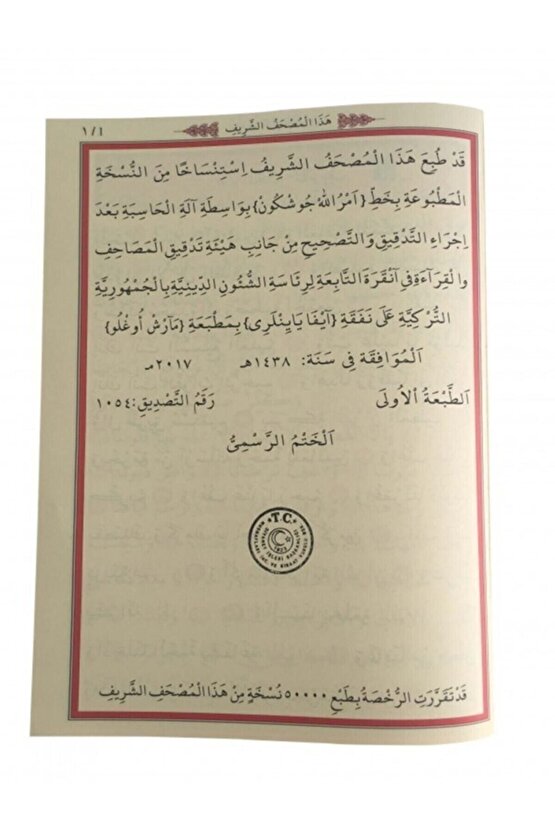 هَذَا الْمُصْحَفُ الشَّرِيفُ
١/٤
قَدْ طُبِعَ هَذَا الْمُصْحَفُ الشَّرِيفُ اِسْتِنْسَاخًا مِنَ النُّسْخَةِ
الْمَطْبُوعَةِ بِخَطِّ {اَمْرُ اللّٰهُ جُوشْكُونْ} بِوَاسِطَةِ آلَةِ الْحَاسِبَةِ بَعْدَ
اِجْرَاءِ التَّدْقِيقِ وَالتَّصْحِيحِ مِنْ جَانِبِ هَيْئَةِ تَدْقِيقِ الْمَصَاحِفِ
وَالْقِرَآءَةِ فِى آنْقَرَةَ التَّابِعَةِ لِرِئَاسَةِ الشُّئُونِ الدِّينِيَّةِ بِالْجُمْهُورِيَّةِ
التُّرْكِيَّةِ عَلَى نَفَقَةِ {آيْفَا يَايِنْلَرِى} بِمَطْبَعَةِ {مَآرْشْ أُوغْلُو}
اَلْمُوَافِقَةِ فِى سَنَةِ: ١٤٣٨هـ ٢٠١٧مـ
اَلطَّبْعَةُ الْاُولَى رَقَمُ التَّصْدِيقِ: ١٠٥٤
اَلْخَتْمُ الرَّسْمِىُّ
T.C.
قَدْ تَقَرَّرَتِ الرُّخْصَةُ بِطَبْعِ ٥٠٠٠٠ نُسْخَةٍ مِنْ هَذَا الْمُصْحَفِ الشَّرِيفِ